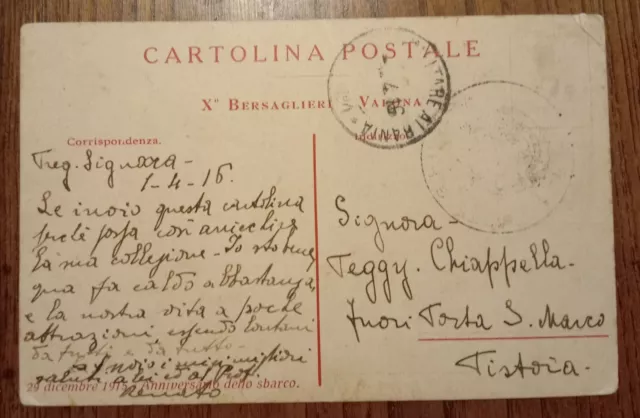 CARTOLINA POSTALE
X° BERSAGLIERI VALONA
Corrispondenza.
Indirizzo.
Preg. Signora -
1-4-16.
Le invio questa cartolina
perché possa con arricchire
la sua collezione - Io sto bene,
qua fa caldo abbastanza,
e la nostra vita a poche
attrazioni essendo lontani
da tutti e da tutto -
invio i miei migliori
saluti a lei ed al Prof.
Renato
29 dicembre 1915 - Anniversario dello sbarco.
Signora -
Peggy. Chiappella -
Fuori Porta S. Marco
Pistoia -